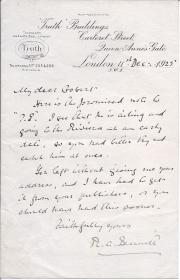 "Truth" Buildings
Carteret Street,
Queen Anne's Gate
London 11th Dec: 1925
S.W.1.
Truth
My dear
Here is the promised note to
"T.P." I see that he is ailing and
going to the Riviera at an early
date, so you had better try and
catch him at once.
You left without giving me your
address, and I have had to get
it from your publishers, or you
should have had this sooner.
Faithfully yours
R. A. Bennett